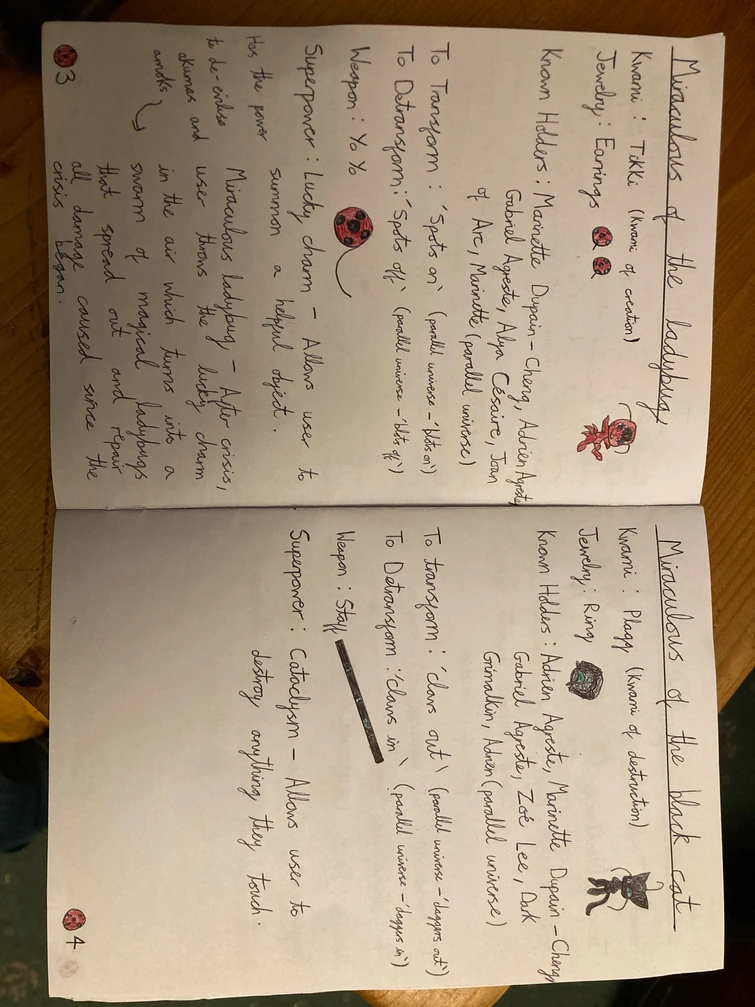 Miraculous of the ladybug
Kwami : Tikki (Kwami of creation)
Jewelry : Earrings
Known Holders : Marinette Dupain-Cheng, Adrien Agreste
Gabriel Agreste, Alya Césaire, Joan
of Arc, Marinette (parallel universe)
To Transform : 'Spots on' (parallel universe - 'blots on')
To Detransform : 'Spots off' (parallel universe - 'blots off')
Weapon : Yo Yo
Superpower : Lucky charm - Allows user to
summon a helpful object.
Miraculous ladybug - After crisis,
user throws the lucky charm
in the air which turns into a
swarm of magical ladybugs
that spread out and repair
all damage caused since the
crisis began.
Has the power
to de-evilise
akumas and
amoks
3
Miraculous of the black cat
Kwami : Plagg (Kwami of destruction)
Jewelry : Ring
Known Holders : Adrien Agreste, Marinette Dupain-Cheng,
Gabriel Agreste, Zoé Lee, Dark
Grimalkin, Adrien (parallel universe)
To transform : 'Claws out' (parallel universe - 'daggers out')
To Detransform : 'Claws in' (parallel universe - 'daggers in')
Weapon : Staff
Superpower : Cataclysm - Allows user to
destroy anything they touch.
4